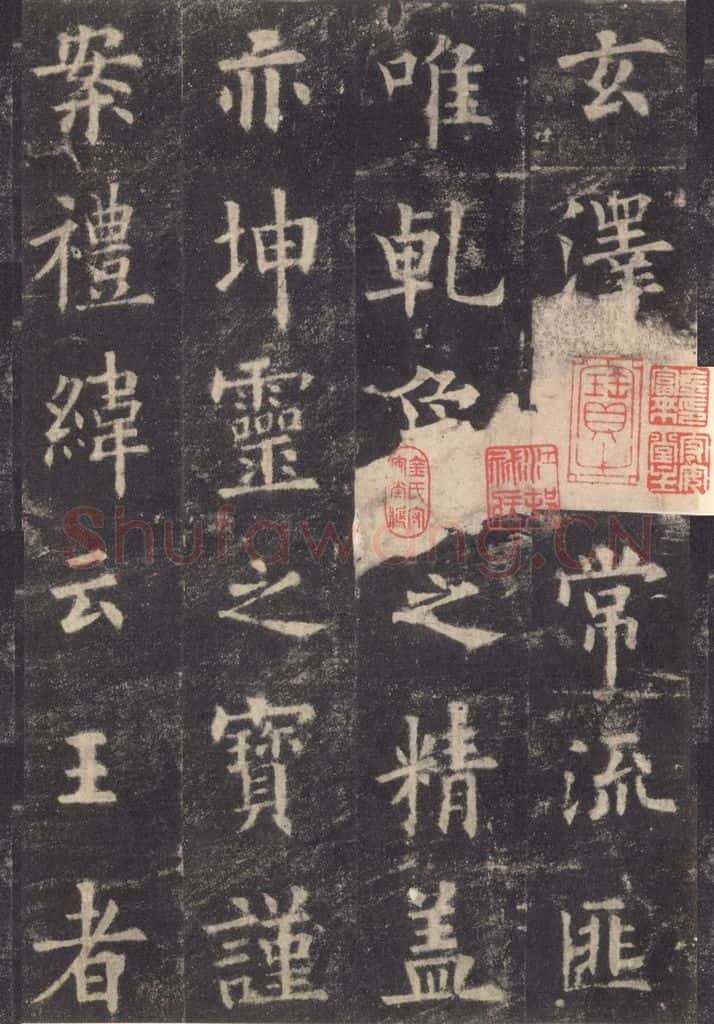 玄澤常流匪
唯乾之精盖
亦坤靈之寶謹
案禮緯云王者
Shufawang.CN